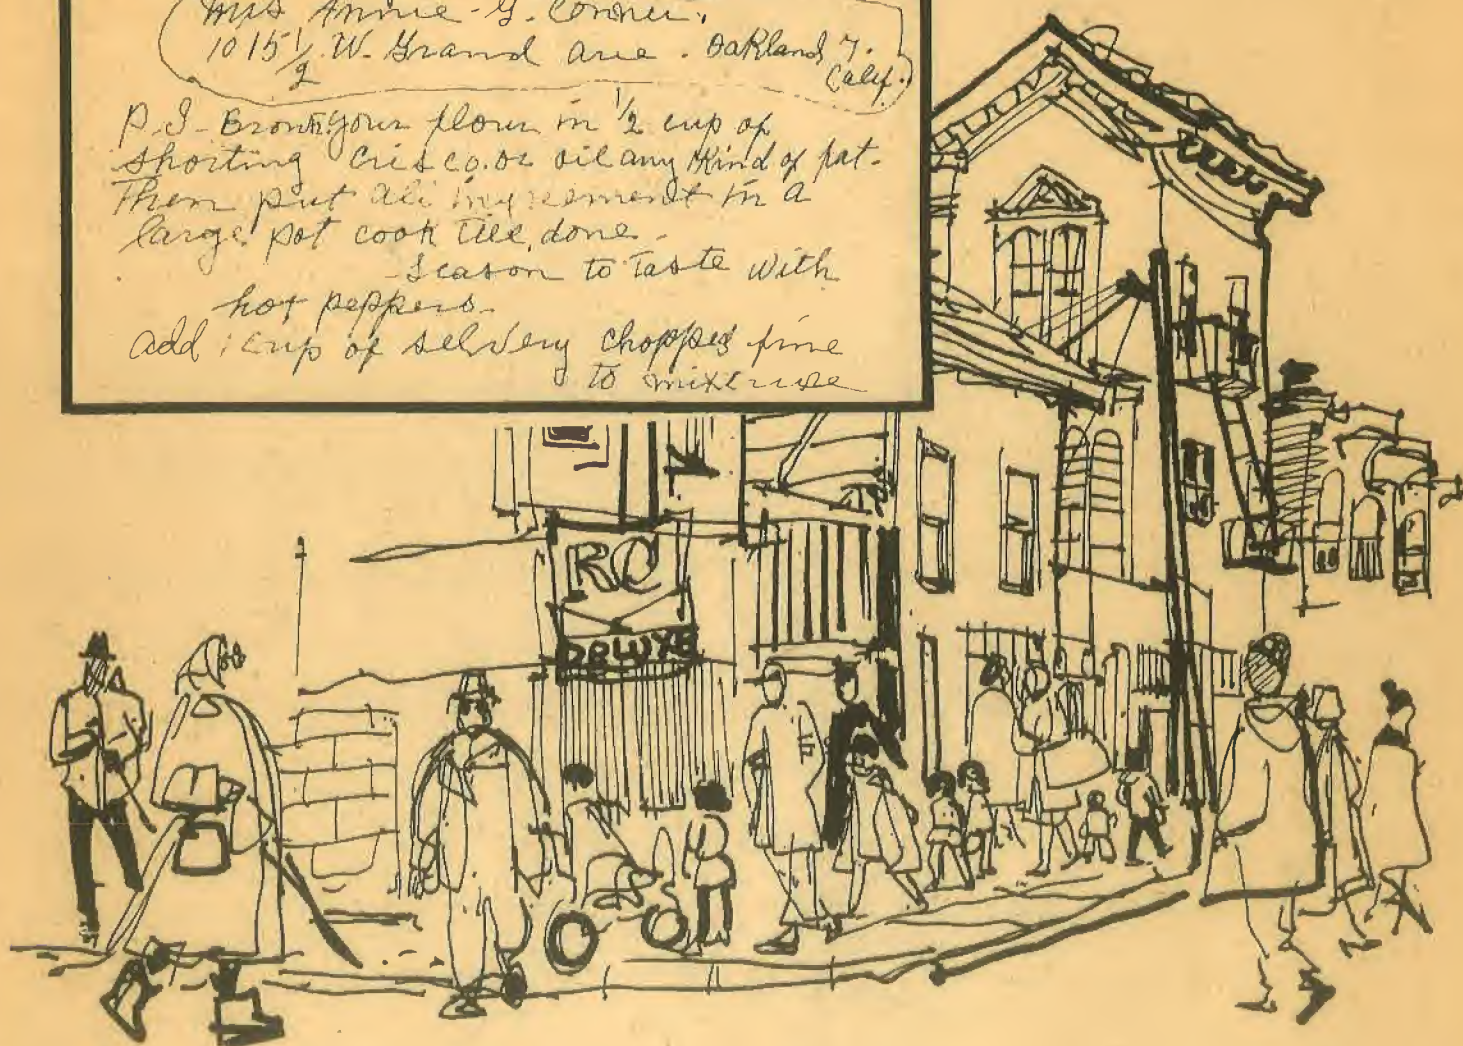 Mrs Annie - G. Conner.
1015 1/2 W. Grand ave. Oakland 7.
Calif.
P.S- Brown your flour in 1/2 cup of
shorting Crisco. or oil any Kind of fat.
Then put all ingrement in a
large pot cook till done.
Season to Taste with
hot peppers.
add 1 cup of selvery chopped fine
to mixeruse
RC
DELUXE